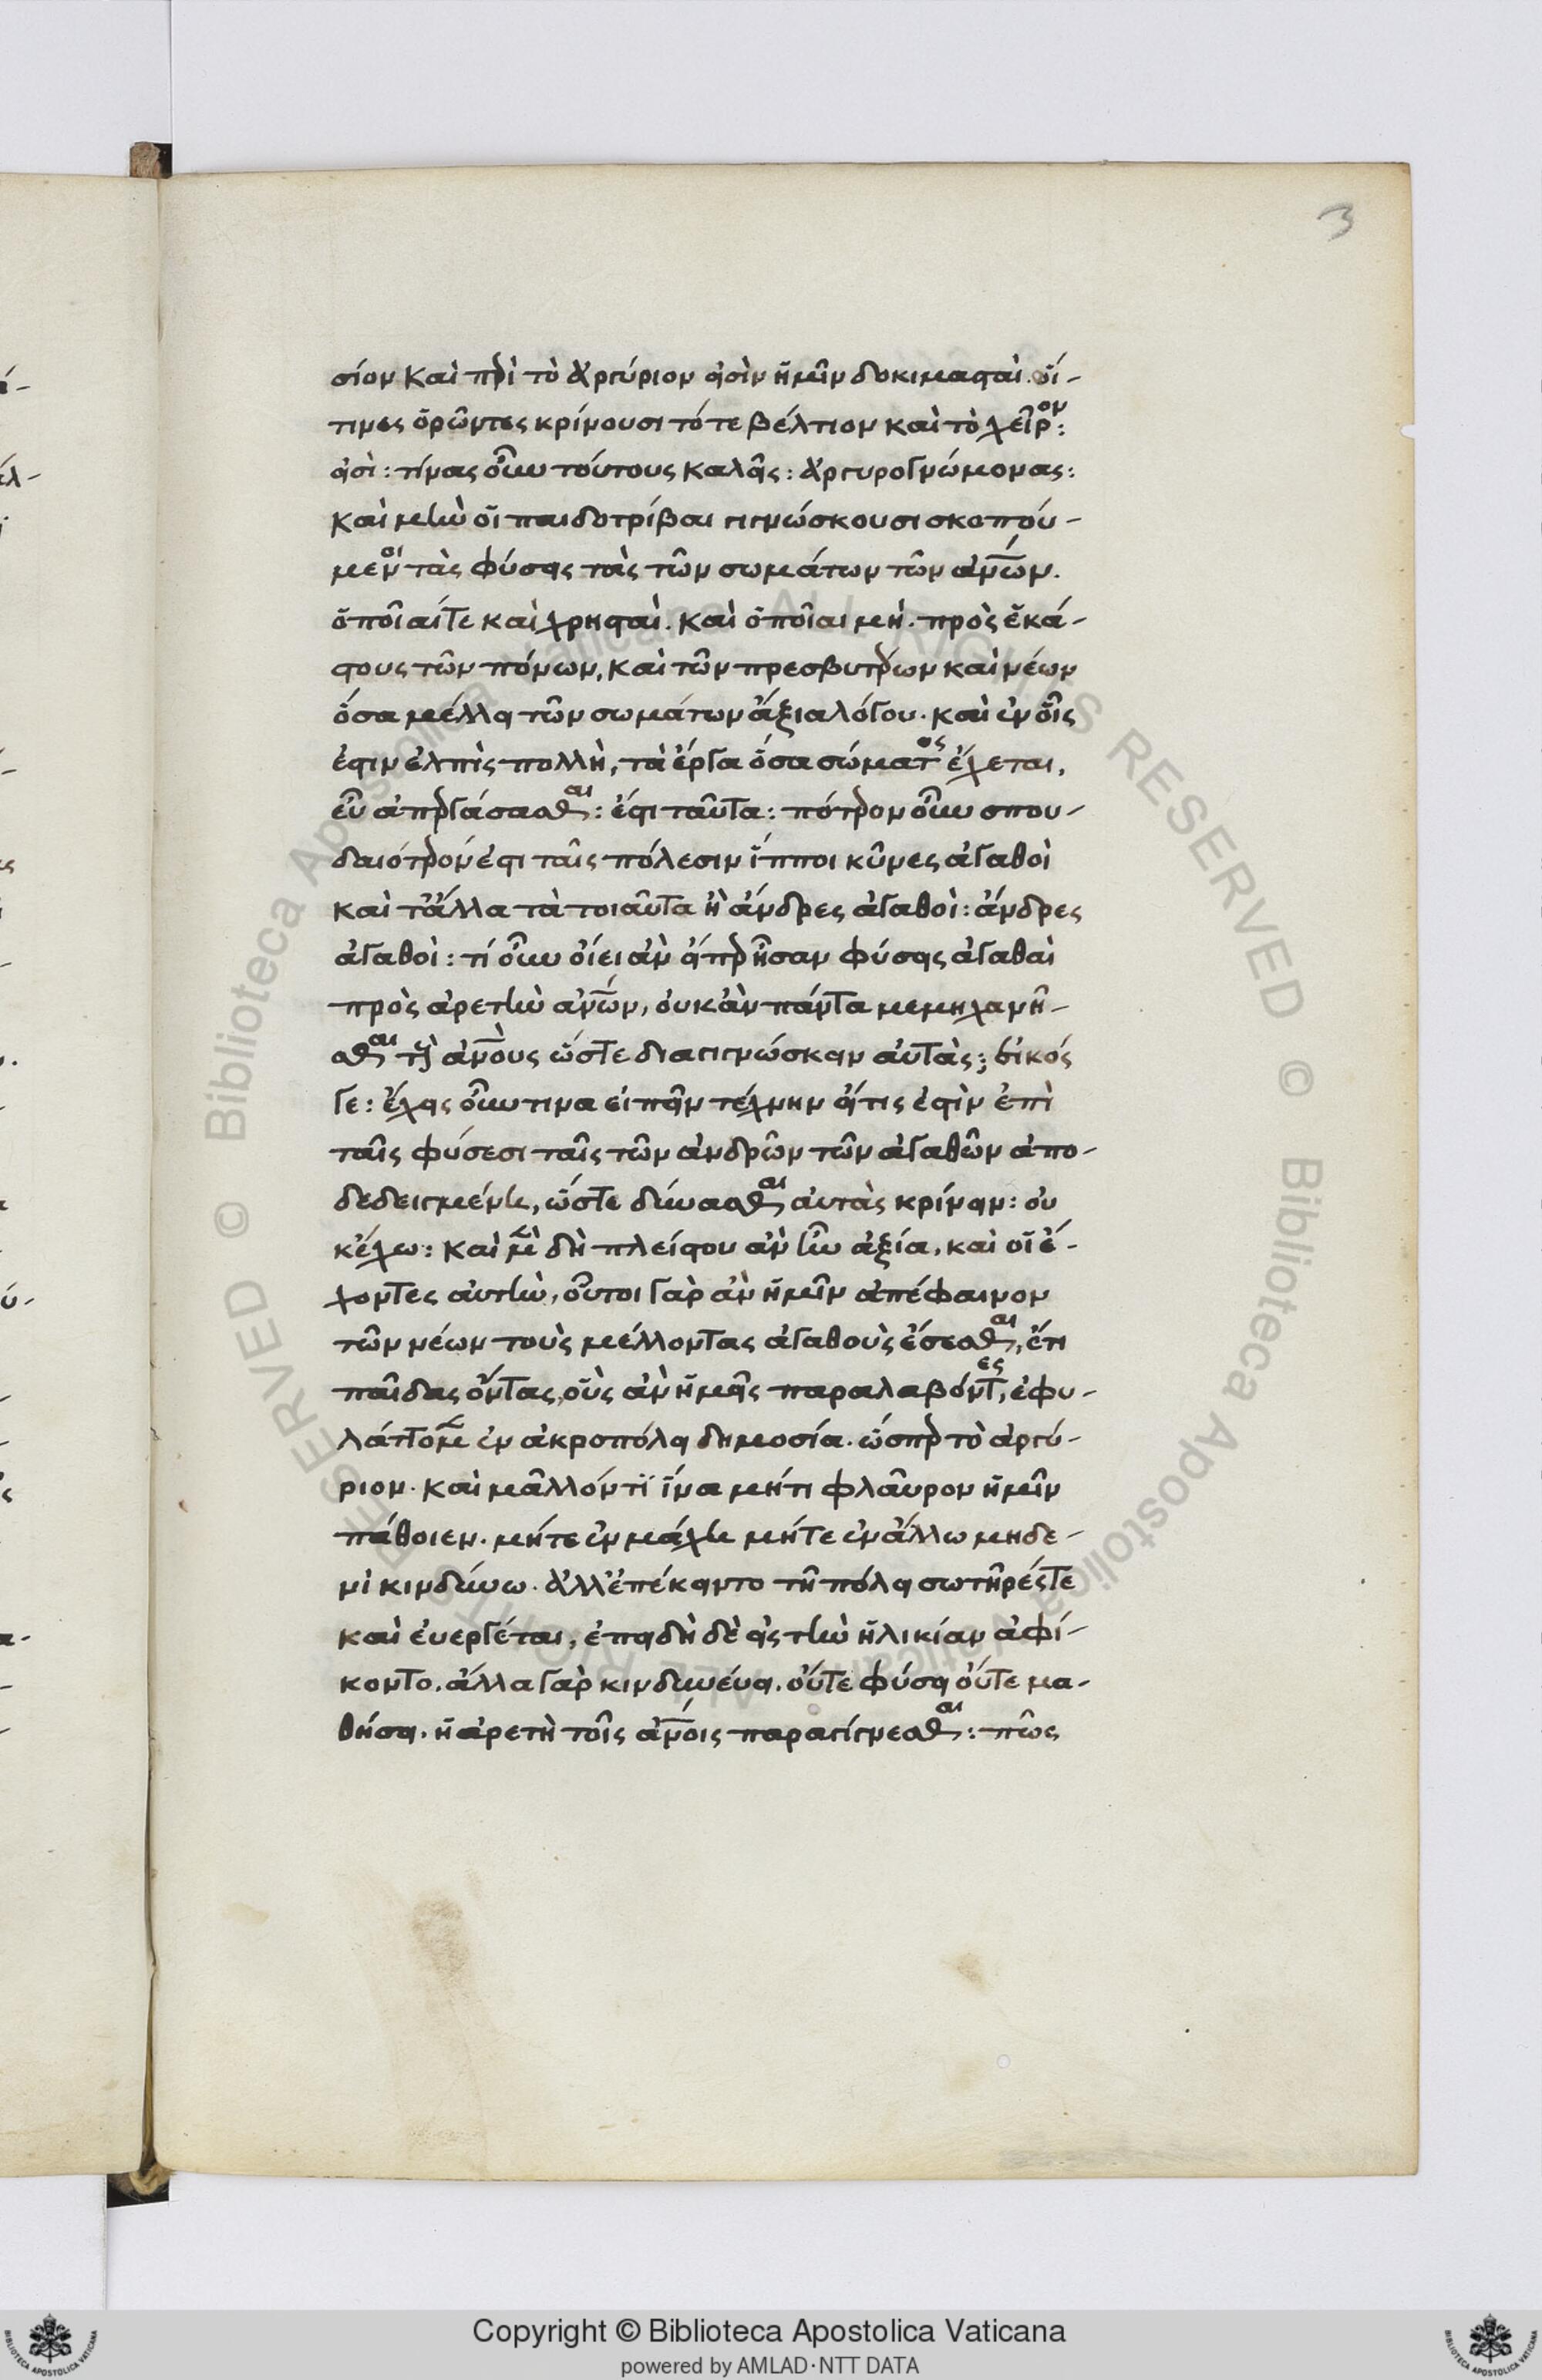 3
σίον καὶ περὶ τὸ ἀργύριον εἰσὶν ἡμῖν δοκιμασταὶ. οἵ-
τινες ὁρῶντες κρίνουσι τό τε βέλτιον καὶ τὸ χεῖρον:
εἰσὶ: τίνας οὖν τούτους καλεῖς: ἀργυρογνώμονας:
καὶ μὴν οἱ παιδοτρίβαι γιγνώσκουσι σκοπού-
μενοι τὰς φύσεις τὰς τῶν σωμάτων τῶν ἀνων.
ὁποῖαί τε καὶ χρησταὶ. καὶ ὁποῖαι μή. πρὸς ἑκά-
στους τῶν πόνων, καὶ τῶν πρεσβυτέρων καὶ νέων
ὅσα μέλλει τῶν σωμάτων ἄξια λόγου. καὶ ἐν οἷς
ἐστιν ἐλπὶς πολλὴ, τὰ ἔργα ὅσα σώματος ἔχεται,
εὖ ἀπεργάσασθαι: ἔστι ταῦτα: πότερον οὖν σπου-
δαιότερόν ἐστι ταῖς πόλεσιν ἵπποι κύνες ἀγαθοὶ
καὶ τἄλλα τὰ τοιαῦτα ἢ ἄνδρες ἀγαθοὶ: ἄνδρες
ἀγαθοὶ: τί οὖν οἴει ἂν εἴπερ ἦσαν φύσεις ἀγαθαὶ
πρὸς ἀρετὴν ἀνων, οὐκ ἂν πάντα μεμηχανῆ-
σθαι τοὺς ἀνους ὥστε διαγιγνώσκειν αὐτὰς; εἰκός
γε: ἔχεις οὖν τινα εἰπεῖν τέχνην ἥτις ἐστὶν ἐπὶ
ταῖς φύσεσι ταῖς τῶν ἀνδρῶν τῶν ἀγαθῶν ἀπο-
δεδειγμένη, ὥστε δύνασθαι αὐτὰς κρίνειν: οὐ
κ ἔχω: καὶ μὲν δὴ πλείστου ἂν ἦν ἀξία, καὶ οἱ ἔ-
χοντες αὐτὴν, οὗτοι γὰρ ἂν ἡμῖν ἀπέφαινον
τῶν νέων τοὺς μέλλοντας ἀγαθοὺς ἔσεσθαι, ἔτι
παῖδας ὄντας, οὓς ἂν ἡμεῖς παραλαβόντες, ἐφυ-
λάττομεν ἐν ἀκροπόλει δημοσία. ὥσπερ τὸ ἀργύ-
ριον. καὶ μᾶλλόν τι ἵνα μή τι φλαῦρον ἡμῖν
πάθοιεν. μήτε ἐν μάχη μήτε ἐν ἄλλω μηδε-
νὶ κινδύνω. ἀλλ' ἐπέκειντο τῆ πόλει σωτῆρές τε
καὶ ἐυεργέται, ἐπειδὴ δὲ εἰς τὴν ἡλικίαν ἀφί-
κοντο. ἀλλα γὰρ κινδυνεύει. οὔτε φύσει οὔτε μα-
θήσει. ἡ ἀρετὴ τοῖς ἀνοις παραγίγνεσθαι: πῶς
Copyright © Biblioteca Apostolica Vaticana
powered by AMLAD·NTT DATA